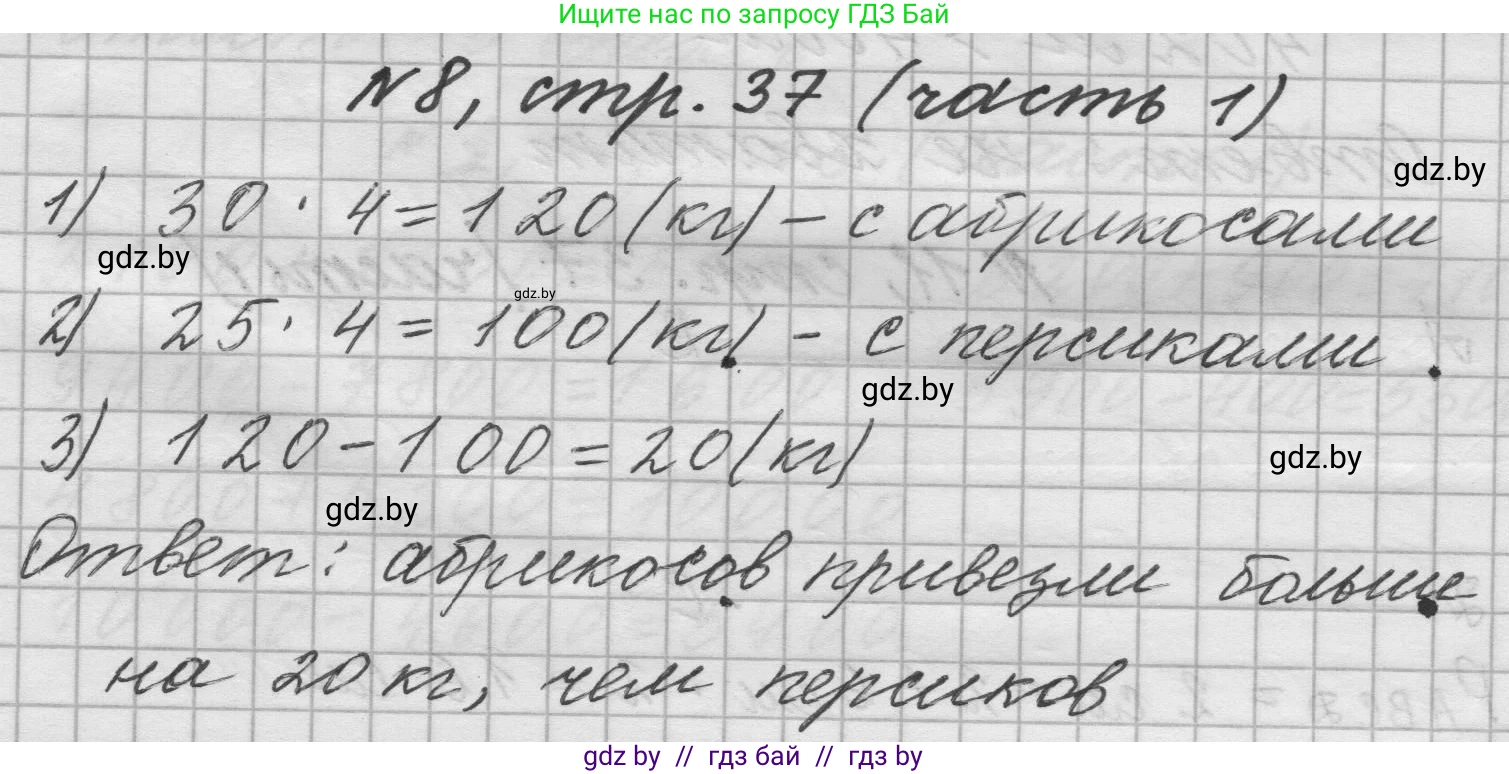 Ищите нас по запросу ГДЗ Бай
№8, стр. 37 (часть 1)
gdz.by
1) 30 · 4 = 120 (кг) – с абрикосами
gdz.by
gdz.by
2) 25 · 4 = 100 (кг) – с персиками.
gdz.by
3) 120 – 100 = 20 (кг)
gdz.by
gdz.by
Ответ: абрикосов привезли больше
на 20 кг, чем персиков
gdz.by // гдз бай // гдз by